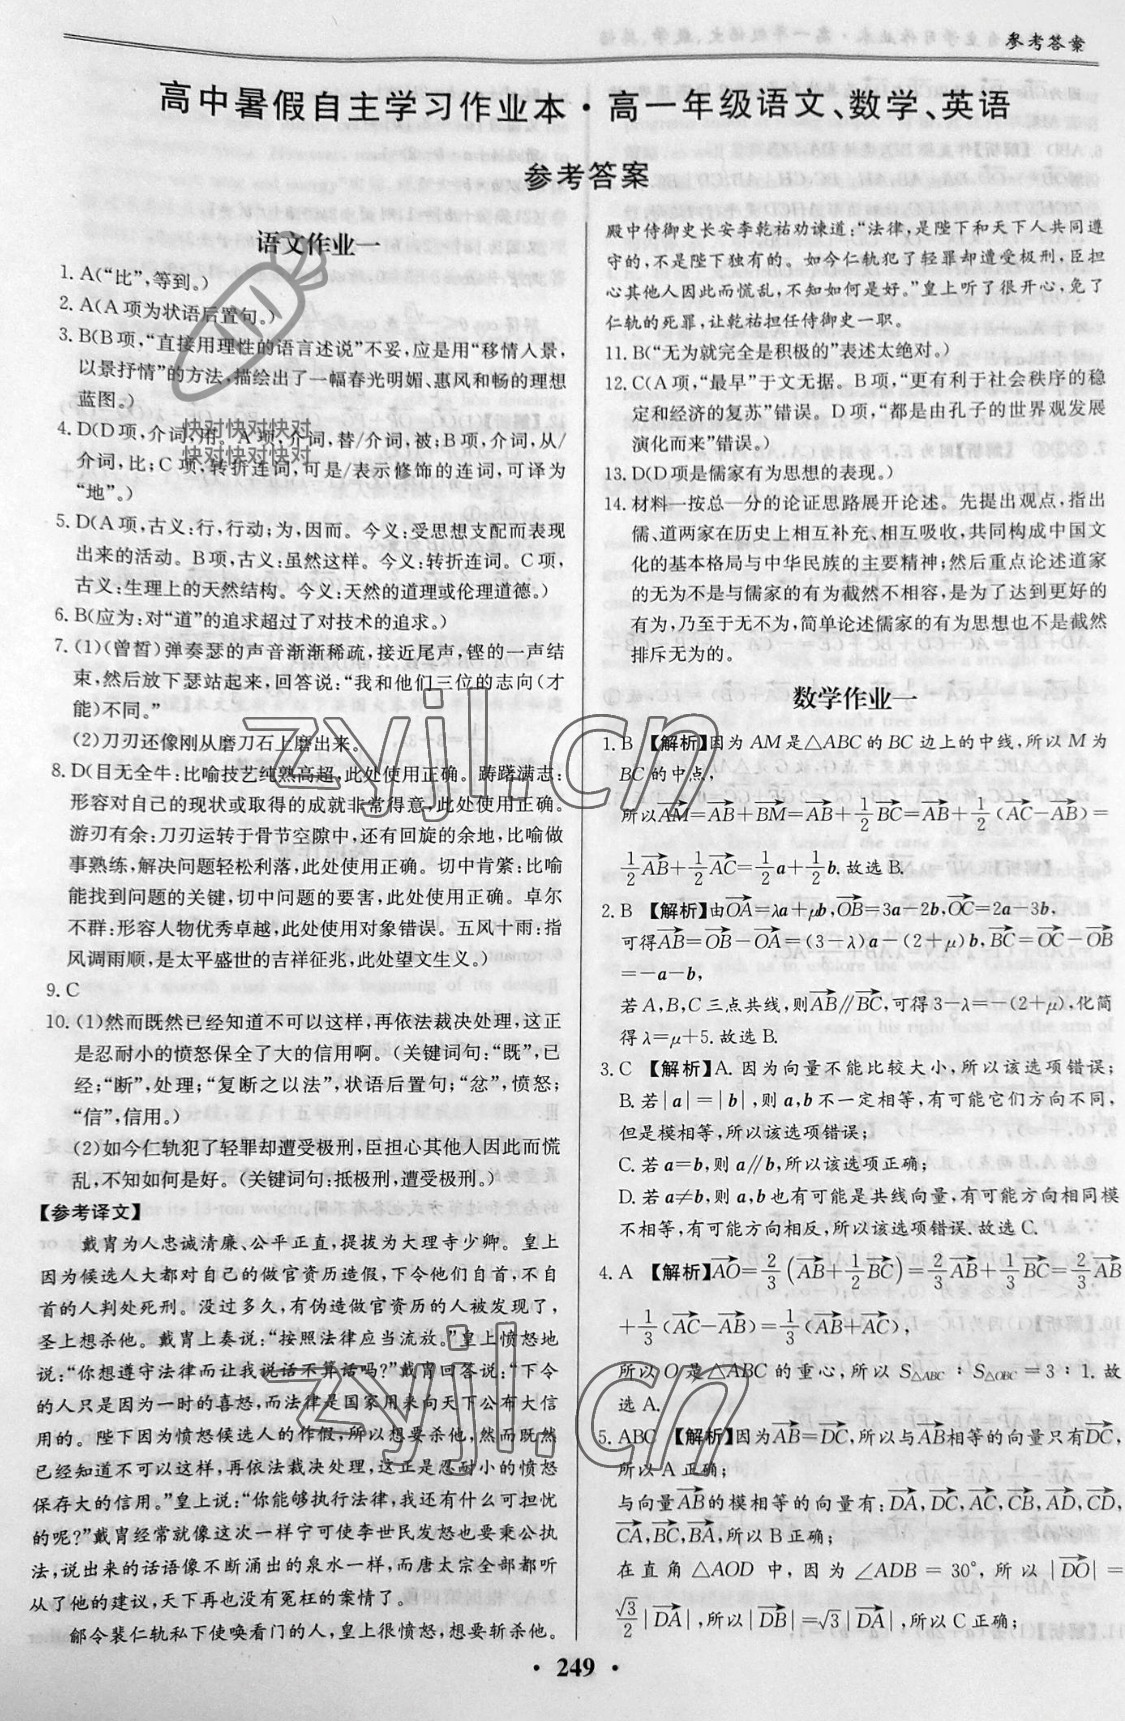 参考答案
高中暑假自主学习作业本·高一年级语文、数学、英语
参考答案
语文作业一
1. A(“比”,等到。)
2. A(A项为状语后置句。)
3. B(B项,“直接用理性的语言述说”不妥,应是用“移情入景,
以景抒情”的方法,描绘出了一幅春光明媚、惠风和畅的理想
蓝图。)
4. D(D项,介词,用。A项,介词,替/介词,被;B项,介词,从/
介词,比;C项,转折连词,可是/表示修饰的连词,可译为
“地”。)
5. D(A项,古义:行,行动;为,因而。今义:受思想支配而表现
出来的活动。B项,古义:虽然这样。今义:转折连词。C项,
古义:生理上的天然结构。今义:天然的道理或伦理道德。)
6. B(应为:对“道”的追求超过了对技术的追求。)
7. (1)(曾皙)弹奏瑟的声音渐渐稀疏,接近尾声,铿的一声结
束,然后放下瑟站起来,回答说:“我和他们三位的志向(才
能)不同。”
(2)刀刃还像刚从磨刀石上磨出来。
8. D(目无全牛:比喻技艺纯熟高超,此处使用正确。踌躇满志:
形容对自己的现状或取得的成就非常得意,此处使用正确。
游刃有余:刀刃运转于骨节空隙中,还有回旋的余地,比喻做
事熟练,解决问题轻松利落,此处使用正确。切中肯綮:比喻
能找到问题的关键,切中问题的要害,此处使用正确。卓尔
不群:形容人物优秀卓越,此处使用对象错误。五风十雨:指
风调雨顺,是太平盛世的吉祥征兆,此处望文生义。)
9. C
10. (1)然而既然已经知道不可以这样,再依法裁决处理,这正
是忍耐小的愤怒保全了大的信用啊。(关键词句:“既”,已
经;“断”,处理;“复断之以法”,状语后置句;“忿”,愤怒;
“信”,信用。)
(2)如今仁轨犯了轻罪却遭受极刑,臣担心其他人因此而慌
乱,不知如何是好。(关键词句:抵极刑,遭受极刑。)
【参考译文】
戴胄为人忠诚清廉、公平正直,提拔为大理寺少卿。皇上
因为候选人大都对自己的做官资历造假,下令他们自首,不自
首的人判处死刑。没过多久,有伪造做官资历的人被发现了,
圣上想杀他。戴胄上奏说:“按照法律应当流放。”皇上愤怒地
说:“你想遵守法律而让我说话不算话吗?”戴胄回答说:“下令
的人只是因为一时的喜怒,而法律是国家用来向天下公布大信
用的。陛下因为愤怒候选人的作假,所以想要杀他,然而既然
已经知道不可以这样,再依法裁决处理,这正是忍耐小的愤怒
保存大的信用。”皇上说:“你能够执行法律,我还有什么可担忧
的呢?”戴胄经常就像这次一样宁可使李世民发怒也要秉公执
法,说出来的话语像不断涌出的泉水一样,而唐太宗全部都听
从了他的建议,天下再也没有冤枉的案情了。
鄃令裴仁轨私下使唤看门的人,皇上很愤怒,想要斩杀他。
殿中侍御史长安李乾祐劝谏道:“法律,是陛下和天下人共同遵
守的,不是陛下独有的。如今仁轨犯了轻罪却遭受极刑,臣担
心其他人因此而慌乱,不知如何是好。”皇上听了很开心,免了
仁轨的死罪,让乾祐担任侍御史一职。
11. B(“无为就完全是积极的”表述太绝对。)
12. C(A项,“最早”于文无据。B项,“更有利于社会秩序的稳
定和经济的复苏”错误。D项,“都是由孔子的世界观发展
演化而来”错误。)
13. D(D项是儒家有为思想的表现。)
14. 材料一按总—分的论证思路展开论述。先提出观点,指出
儒、道两家在历史上相互补充、相互吸收,共同构成中国文
化的基本格局与中华民族的主要精神;然后重点论述道家
的无为不是与儒家的有为截然不相容,是为了达到更好的
有为,乃至于无不为,简单论述儒家的有为思想也不是截然
排斥无为的。
数学作业一
1. B 【解析】因为AM是△ABC的BC边上的中线,所以M为
BC的中点,
所以AM=AB+BM=AB+1/2BC=AB+1/2(AC−AB)=
1/2AB+1/2AC=1/2a+1/2b.故选B.
2. B 【解析】由OA=λa+μb,OB=3a−2b,OC=2a−3b,
可得AB=OB−OA=(3−λ)a−(2+μ)b,BC=OC−OB
=−a−b,
若A,B,C三点共线,则AB∥BC,可得3−λ=−(2+μ),化简
得λ=μ+5.故选B.
3. C 【解析】A.因为向量不能比较大小,所以该选项错误;
B.若|a|=|b|,则a,b不一定相等,有可能它们方向不同,
但是模相等,所以该选项错误;
C.若a=b,则a∥b,所以该选项正确;
D.若a≠b,则a,b也有可能是共线向量,有可能方向相同模
不相等,有可能方向相反,所以该选项错误.故选C.
4. A 【解析】AO=2/3(AB+1/2BC)=2/3AB+1/3BC=2/3AB
+1/3(AC−AB)=1/3(AB+AC),
所以O是△ABC的重心,所以S△ABC∶S△OBC=3∶1.故
选A.
5. ABC 【解析】因为AB=DC,所以与AB相等的向量只有DC,
所以A正确;
与向量AB的模相等的向量有:DA,DC,AC,CB,AD,CD,
CA,BC,BA,所以B正确;
在直角△AOD中,因为∠ADB=30°,所以|DO|=
√3/2|DA|,所以|DB|=√3|DA|,所以C正确;
• 249 •
快对快对快对
快对快对快对
zyjl.cn
zyjl.cn